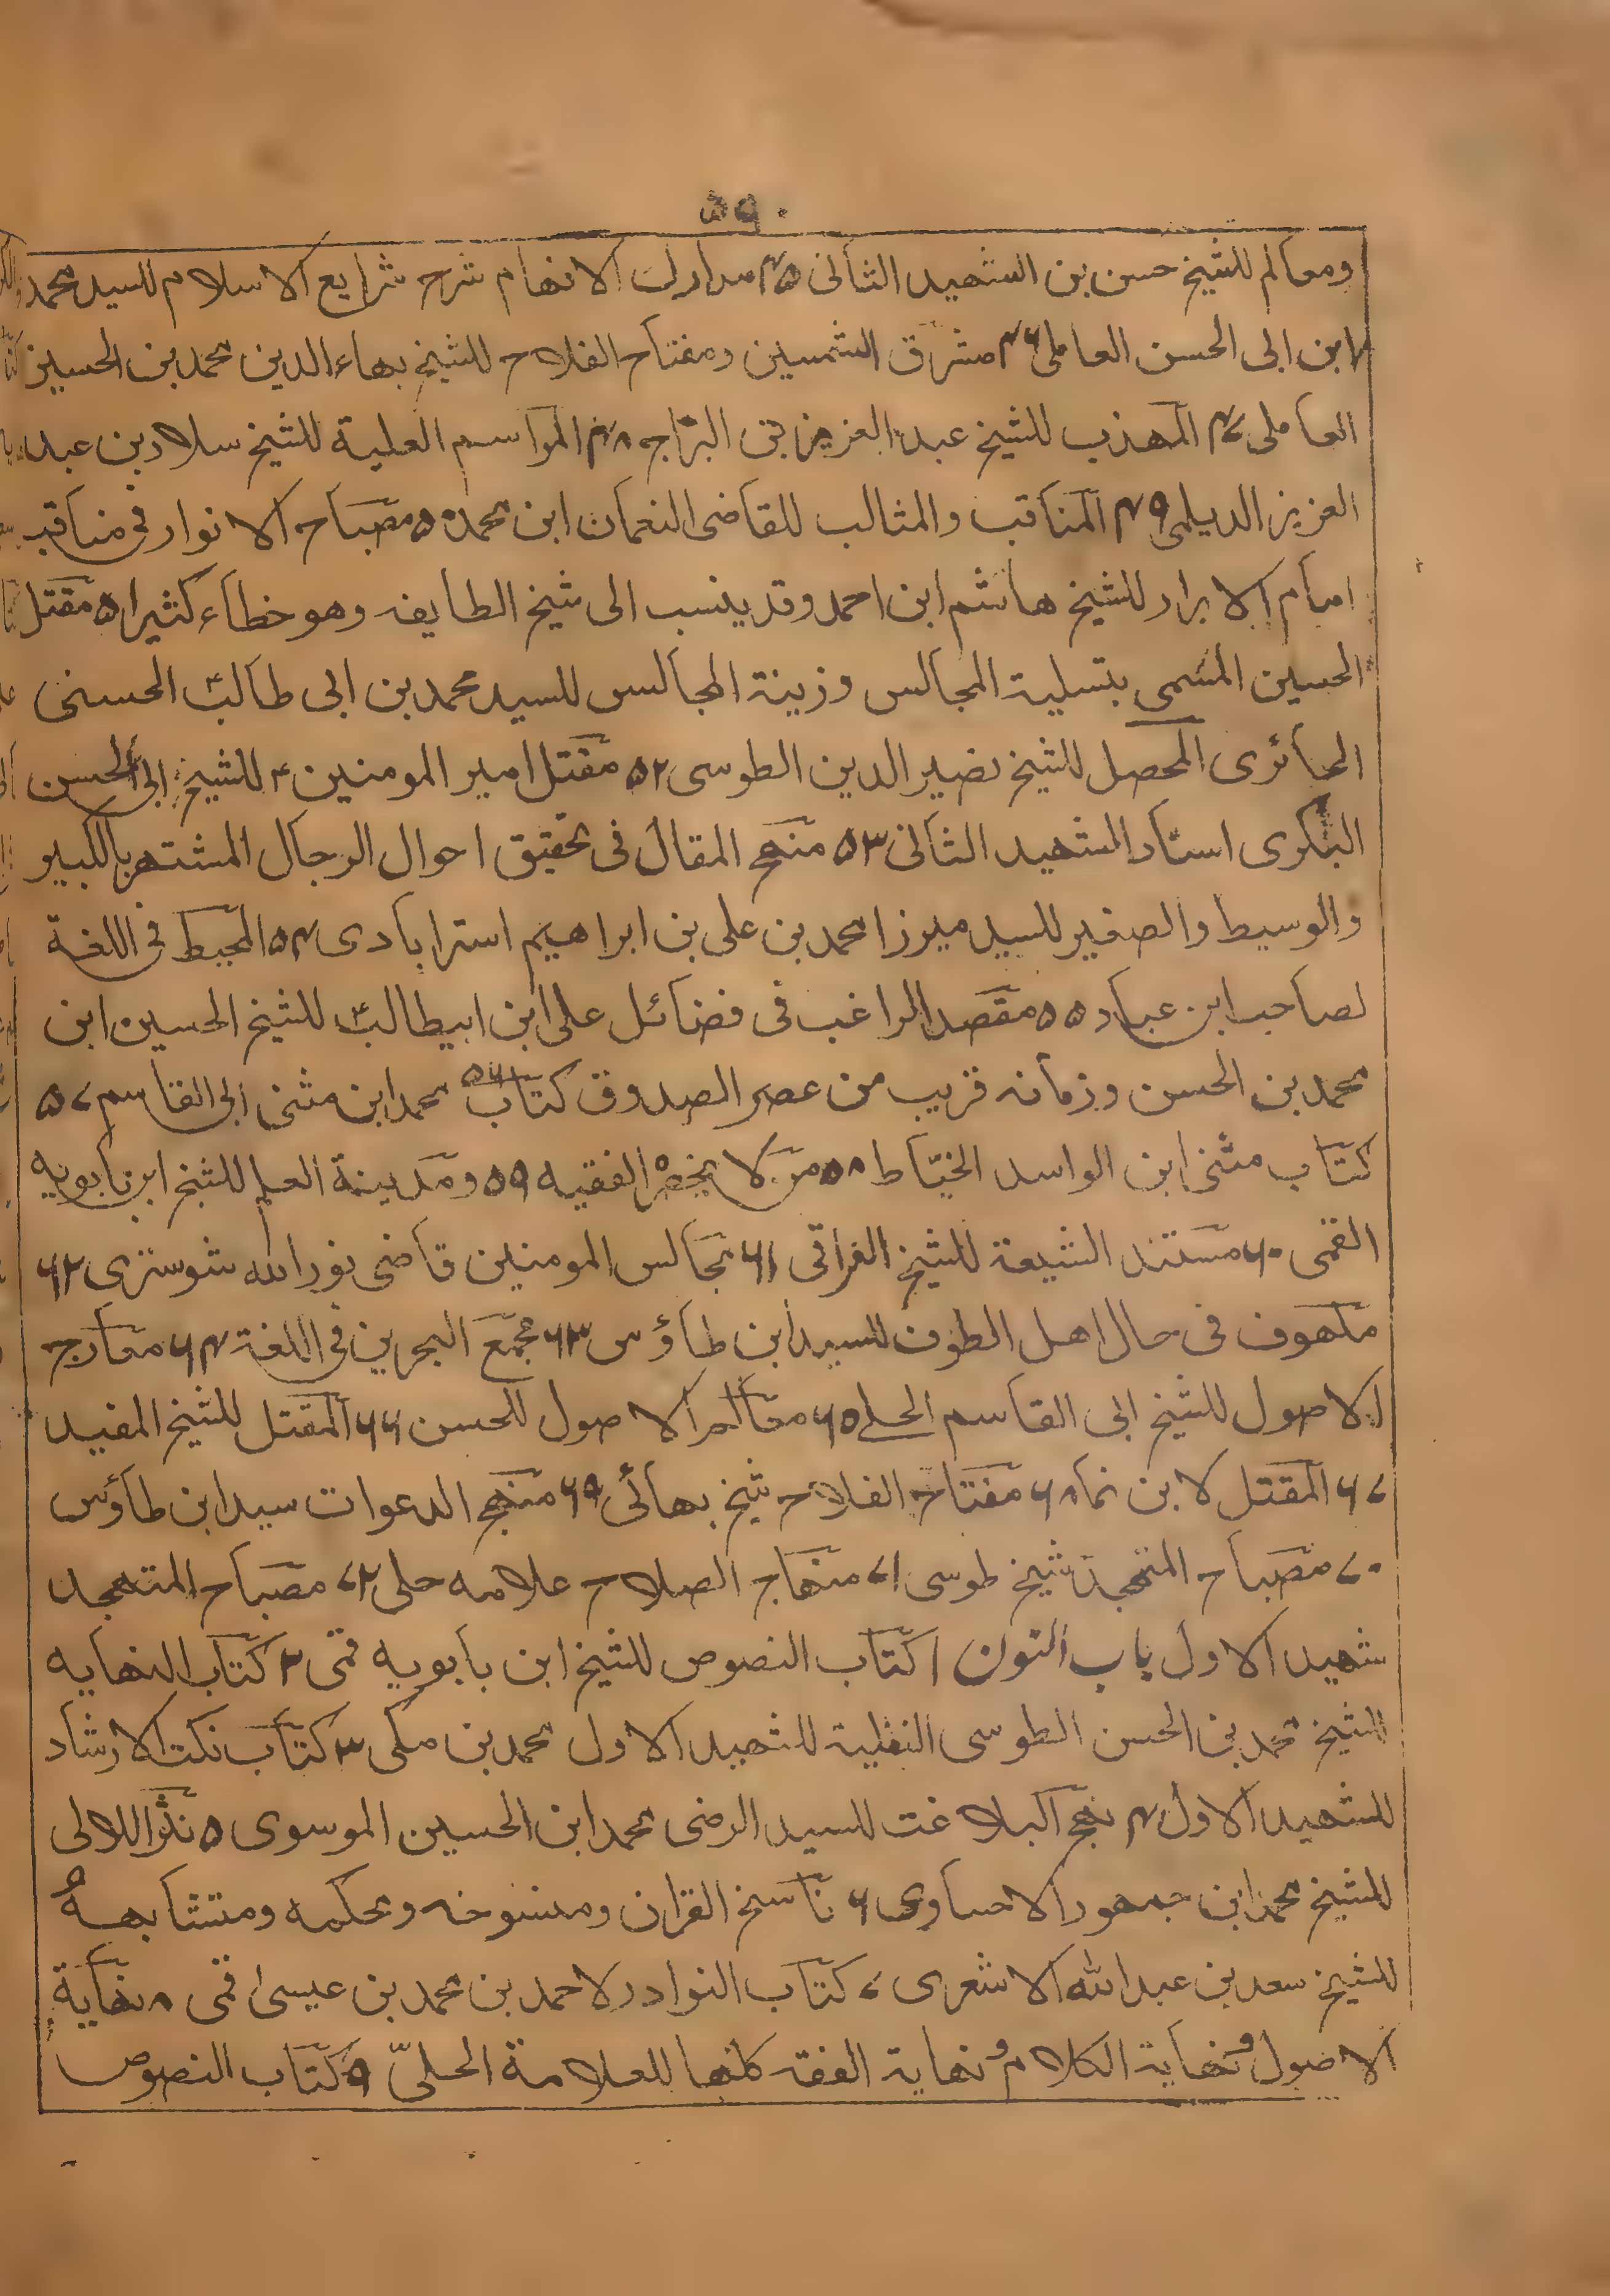 ۵۹۰
ومعالم للشيخ حسن بن الشهيد الثانى ۴۵ مدارك الافهام شرح شرايع الاسلام للسيد محمد
ابن ابى الحسن العاملى ۴۶ مشرق الشمسين ومفتاح الفلاح للشيخ بهاء الدين محمد بن الحسين
العاملى ۴۷ المهذب للشيخ عبد العزيز بن البراج ۴۸ المواسم العلية للشيخ سلار بن عبد
العزيز الديلمى ۴۹ المناقب والمثالب للقاضى النعمان ابن محمد ۵۰ مصباح الانوار فى مناقب
امام الابرار للشيخ هاشم ابن احمد وقد ينسب الى شيخ الطايفه وهو خطاء كثير ۵۱ مقتل
الحسين المسمى بتسلية المجالس وزينة المجالس للسيد محمد بن ابى طالب الحسنى
الحائرى المحصل للشيخ نصير الدين الطوسى ۵۲ مقتل امير المومنين ؑ للشيخ ابى الحسن
البكرى استاد الشهيد الثانى ۵۳ منهج المقال فى تحقيق احوال الرجال المشتهر بالكبير
والوسيط والصغير للسيد ميرزا محمد بن على بن ابراهيم استرابادى ۵۴ المحيط فى اللغة
لصاحب ابن عباد ۵۵ مقصد الراغب فى فضائل على ابن ابيطالب للشيخ الحسين ابن
محمد بن الحسن وزمانه قريب من عصر الصدوق ۵۶ كتاب محمد ابن مثنى ابى القاسم ۵۷
كتاب مثنى ابن الواسد الخياط ۵۸ من لا يحضر الفقيه ۵۹ ومدينة العلم للشيخ ابن بابويه
القمى ۶۰ مستند الشيعة للشيخ الغراقى ۶۱ مجالس المومنين قاضى نور الله شوسترى ۶۲
ملهوف فى حال اهل الطوف للسيد ابن طاؤس ۶۳ مجمع البحرين فى اللغة ۶۴ معارج
الاصول للشيخ ابى القاسم الحلے ۶۵ معالم الاصول للحسن ۶۶ المقتل للشيخ المفيد
۶۷ المقتل لابن نما ۶۸ مفتاح الفلاح شيخ بهائى ۶۹ منهج الدعوات سيد ابن طاؤس
۷۰ مصباح المتهجد شيخ طوسى ۷۱ منهاج الصلاح علامه حلى ۷۲ مصباح المتهجد
شهيد الاول باب النون ۱ كتاب النصوص للشيخ ابن بابويه قمى ۲ كتاب النهايه
للشيخ محمد بن الحسن الطوسى النفلية للشهيد الاول محمد بن مكى ۳ كتاب نكت الارشاد
للشهيد الاول ۴ نهج البلاغت للسيد الرضى محمد ابن الحسين الموسوى ۵ نثر اللالى
للشيخ محمد ابن جمهور الاحساوى ۶ ناسخ القران ومنسوخه ومحكمه ومتشابهه
للشيخ سعد بن عبد الله الاشعرى ۷ كتاب النوادر لاحمد بن محمد بن عيسى قمى ۸ نهاية
الاصول ونهاية الكلام ونهاية الفقه كلها للعلامة الحلىّ ۹ كتاب النصوص